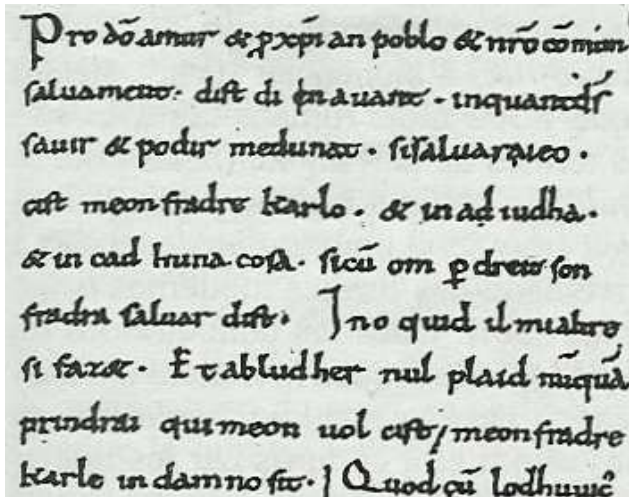 Pro dō amur & ꝑ xp̄ian poblo & nr̄o cōmun
saluament. dist di en auant. inquant dī
sauir & podir medunat. sisaluaraieo.
cist meon fradre karlo. & in ad iudha.
& in cad huna cosa. sicū om ꝑ dreit son
fradra saluar dist. Ino quid il mialtre
si faz&. Et abludher nul plaid nūquā
prindrai qui meon uol cist/meon fradre
karle in damno sit. Quod cū lodhuuic̄